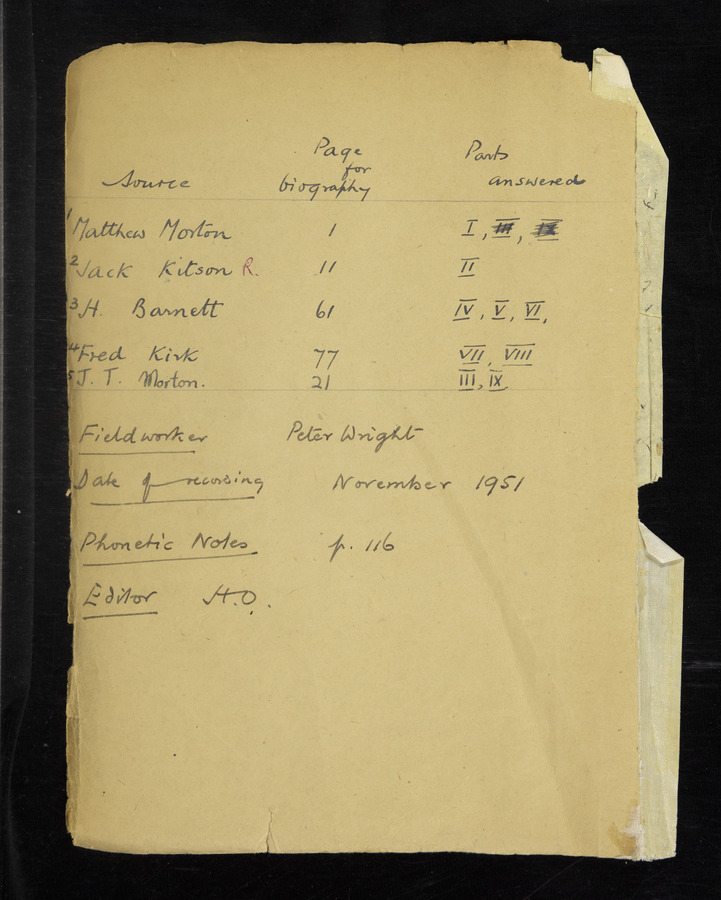 Source Page for biography Parts answered
1 Matthew Morton 1 I, III, IX
2 Jack Kitson R. 11 II
3 H. Barnett 61 IV, V, VI,
4 Fred Kirk 77 VII, VIII
5 J. T. Morton. 21 III, IX
Fieldworker Peter Wright
Date of recording November 1951
Phonetic Notes p. 116
Editor H.O.